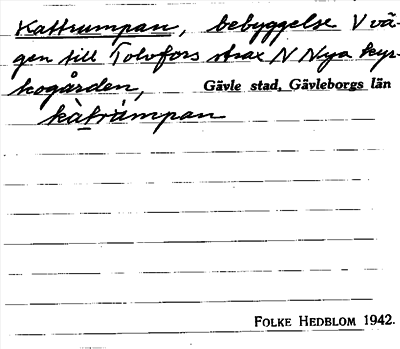 Kattrumpan, bebyggelse V vä-
gen till Tolvfors strax N Nya kyr-
kogården, Gävle stad, Gävleborgs län
kàtrámpan
FOLKE HEDBLOM 1942.